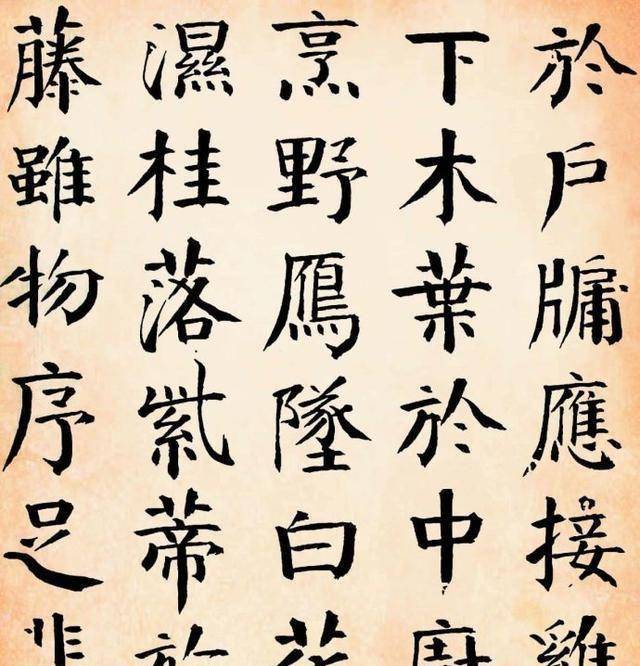 於戶牖應接雞
下木葉於中
烹野鴈墜白花
濕桂落紫蒂於
藤雖物序足